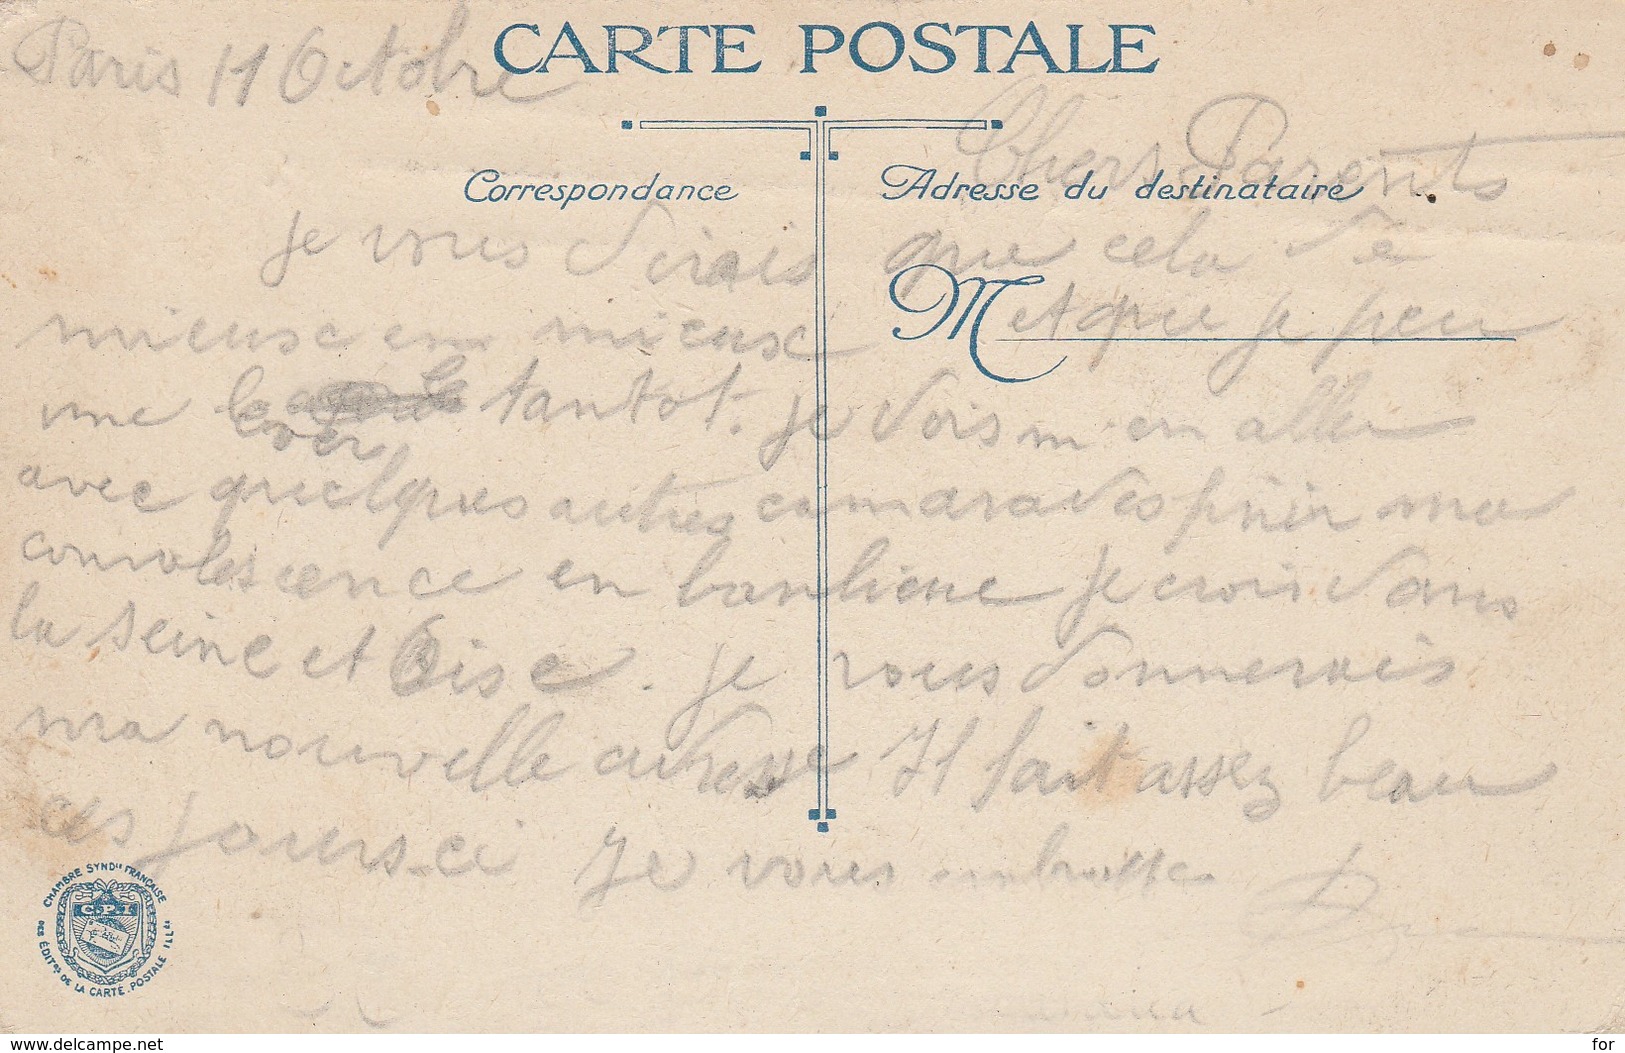 CARTE POSTALE
Paris 11 Octobre
Chers Parents
Correspondance
Adresse du destinataire
je vous dirais que cela vê
mieuse en mieuse et que je peu
M
me lever tantot. je vois m'en aller
avec quelques autres camarades finir ma
convolescence en banlieue je crois dans
la Seine et Oise. je vous donnerais
ma nouvelle adresse Il fait assez beau
ces jours-ci Je vous embrasse
CHAMBRE SYND.le FRANÇAISE
C.P.I
DES ÉDIT.rs DE LA CARTE POSTALE ILL.ée
www.delcampe.net
for